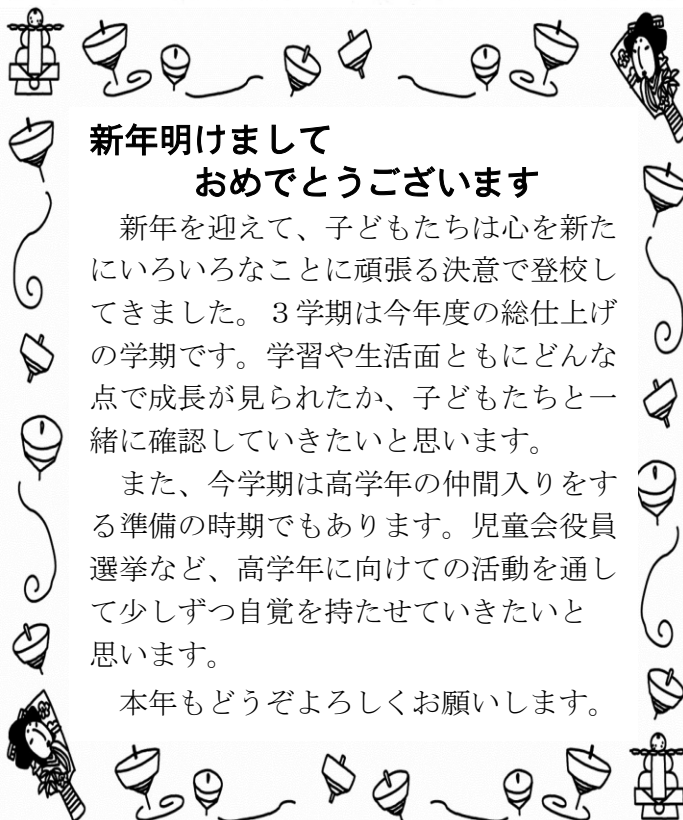 新年明けまして
おめでとうございます
新年を迎えて、子どもたちは心を新た
にいろいろなことに頑張る決意で登校し
てきました。３学期は今年度の総仕上げ
の学期です。学習や生活面ともにどんな
点で成長が見られたか、子どもたちと一
緒に確認していきたいと思います。
また、今学期は高学年の仲間入りをす
る準備の時期でもあります。児童会役員
選挙など、高学年に向けての活動を通し
て少しずつ自覚を持たせていきたいと
思います。
本年もどうぞよろしくお願いします。